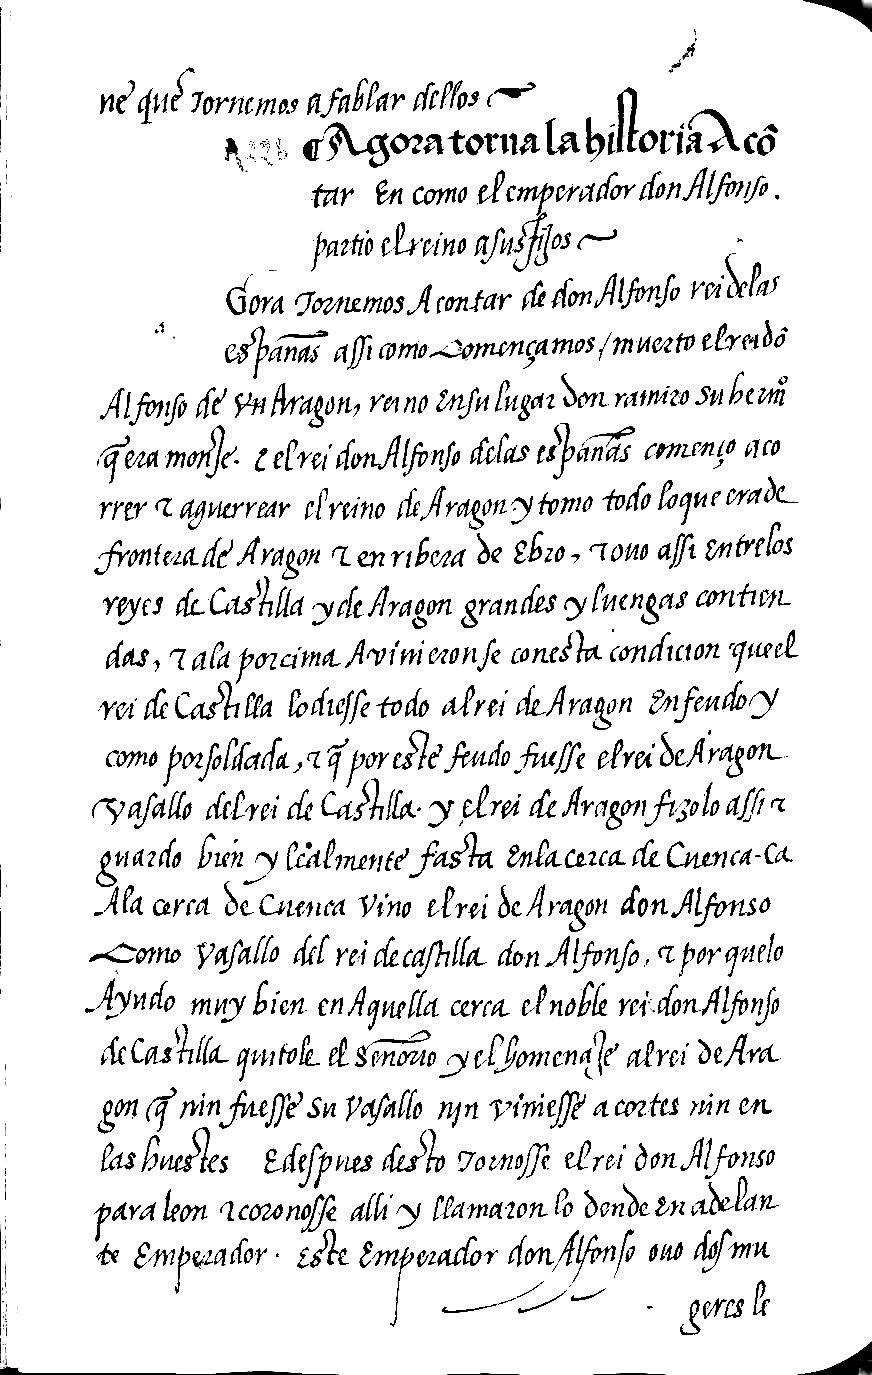 ne que Tornemos a fablar dellos
Agora torna la historia A cõ
tar En como el emperador don Alfonso.
partio el reino a sus fijos
Gora Tornemos A contar de don Alfonso rei de las
españas assi como Començamos / muerto el rei dõ
Alfonso de Un Aragon, reino En su lugar don ramiro su hermº
q̃ era monje. τ el rei don Alfonso de las españas començo a co
rrer τ a guerrear el reino de Aragon y tomo todo lo que era de
frontera de Aragon τ en ribera de Ebro, τ ouo assi Entre los
reyes de Castilla y de Aragon grandes y luengas contien
das, τ a la por cima Avinieronse con esta condicion que el
rei de Castilla lo diesse todo al rei de Aragon En feudo y
como por soldada, τ q̃ por este feudo fuesse el rei de Aragon
Vasallo del rei de Castilla. y el rei de Aragon fizolo assi τ
guardo bien y lealmente fasta En la cerca de Cuenca. Ca
A la cerca de Cuenca Vino el rei de Aragon don Alfonso
Como Vasallo del rei de castilla don Alfonso, τ por que lo
Ayudo muy bien en Aquella cerca el noble rei don Alfonso
de Castilla quitole el Señorio y el homenaje al rei de Ara
gon q̃ nin fuesse su Vasallo njn viniesse a cortes nin en
las huestes E despues desto Tornosse el rei don Alfonso
para leon τ coronosse alli y llamaron lo dende En adelan
te Emperador. Este Emperador don Alfonso ouo dos mu
geres le